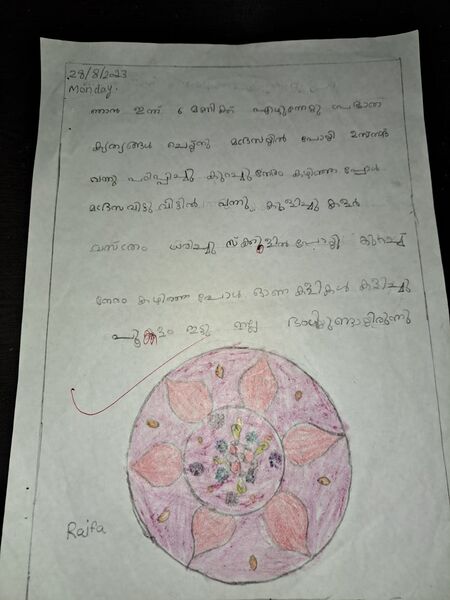 28/8/2023
Monday.
ഞാൻ ഇന്ന് 6 മണിക്ക് എഴുന്നേറ്റു പ്രഭാത
കൃത്യങ്ങൾ ചെയ്തു മദ്രസയിൽ പോയി ഉസ്താദ്
വന്നു പഠിപ്പിച്ചു കുറച്ചു നേരം കഴിഞ്ഞപ്പോൾ
മദ്രസ വിട്ടു വീട്ടിൽ വന്നു. കുളിച്ചു കളർ
വസ്ത്രം ധരിച്ചു സ്ക്കൂളിൽ പോയി കുറച്ച്
നേരം കഴിഞ്ഞ പോൾ ഓണ കളികൾ കളിച്ചു
പൂക്കളം ഇട്ടു നല്ല ഭംഗിയുണ്ടായിരുന്നു
Rajfa